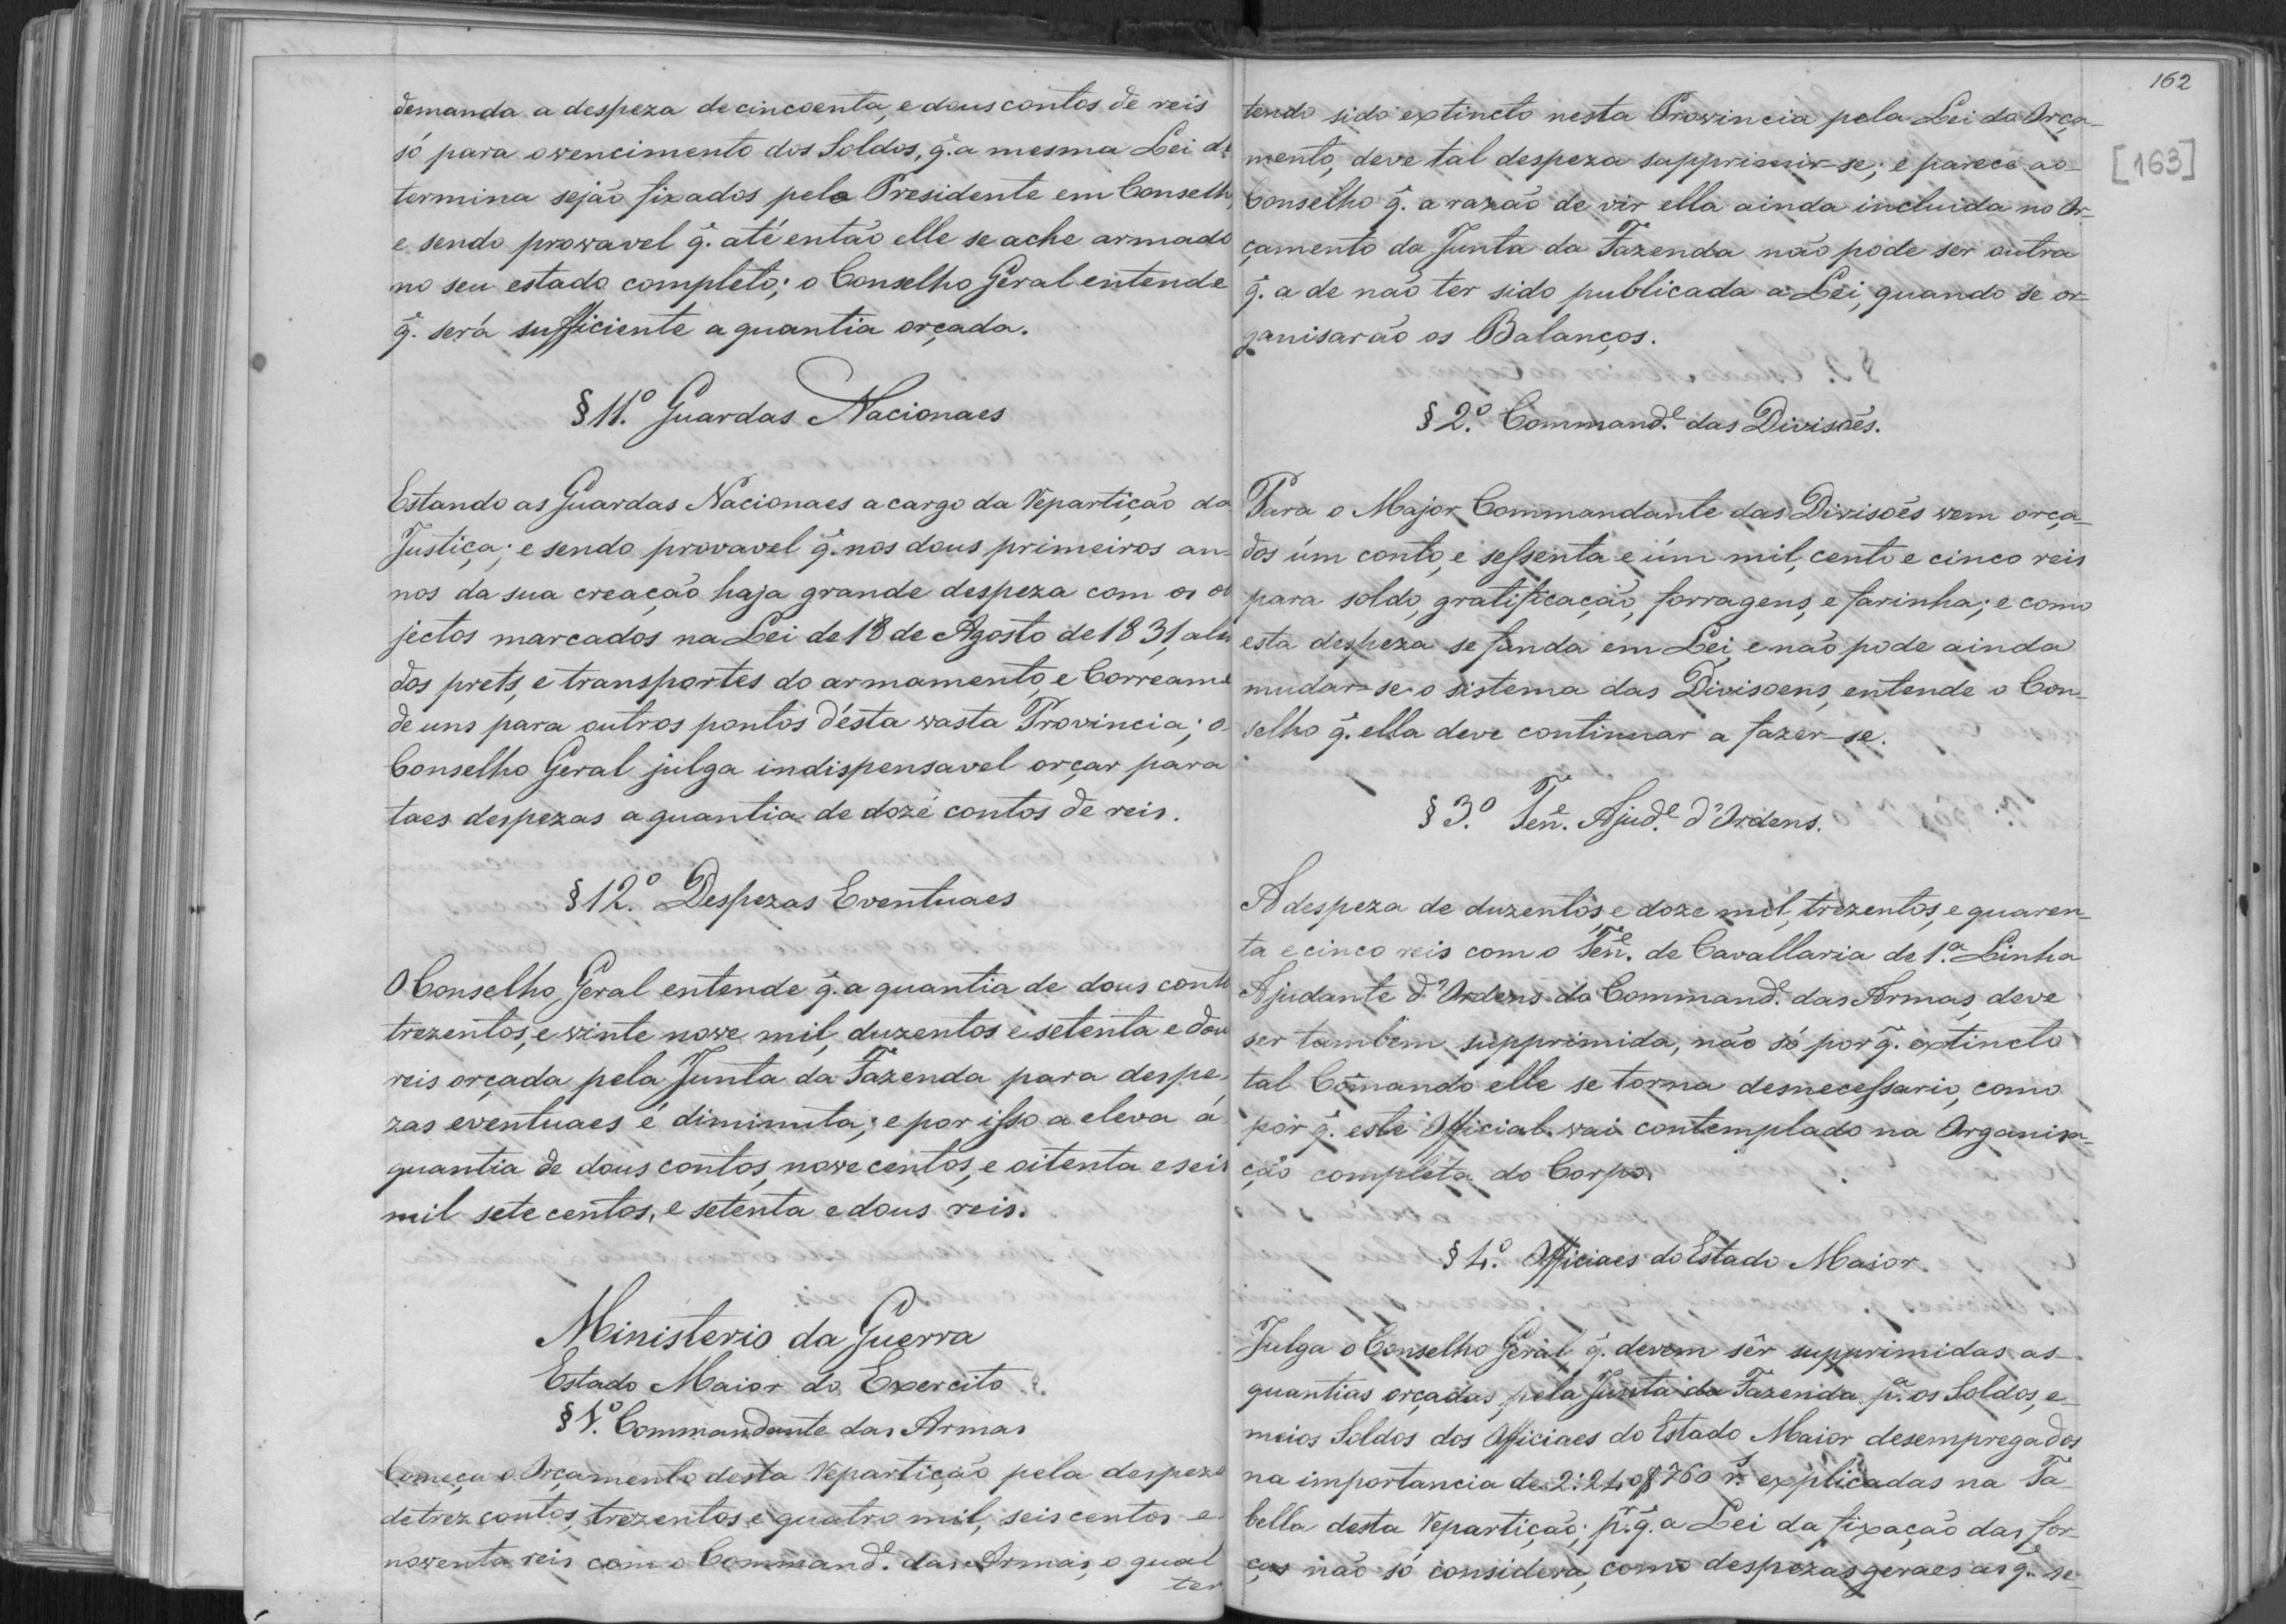 demanda a despeza de cincoenta, e dous contos de reis
só para o vencimento dos Soldos, q̃. a mesma Lei de
termina sejão fixados pelo Presidente em Conselho,
e sendo provavel q̃. até então elle se ache armado
no seu estado completo; o Conselho Geral entende
q̃. será sufficiente a quantia orçada.
§ 11.º Guardas Nacionaes
Estando as Guardas Nacionaes a cargo da Repartição da
Justiça; e sendo provavel q̃. nos dous primeiros an-
nos da sua creação haja grande despeza com os ob
jectos marcados na Lei de 18 de Agosto de 1831, alem
dos prets, e transportes do armamento, e Correame
de uns para outros pontos d'ésta vasta Provincia; o
Conselho Geral julga indispensavel orçar para
taes despezas a quantia de doze contos de reis.
§ 12.º Despezas Eventuaes
O Conselho Geral entende q̃. a quantia de dous conto
trezentos, e vinte nove mil, duzentos e setenta e dou
reis orçada pela Junta da Fazenda para despe-
zas eventuaes é diminuta; e por isso a eleva á
quantia de dous contos, nove centos, e oitenta e seis
mil sete centos, e setenta e dous reis.
Ministerio da Guerra
Estado Maior do Exercito
§ 1.º Commandante das Armas
Começa o Orçamento desta Repartição pela despeza
de trez contos, trezentos e quatro mil, seis centos e
noventa reis com o Command.e das Armas, o qual
ter
162
[163]
tendo sido extincto nesta Provincia pela Lei do Orça-
mento, deve tal despeza supprimir-se; e parece ao
Conselho q̃. a razão de vir ella ainda incluida no Or-
çamento da Junta da Fazenda não pode ser outra
q̃. a de não ter sido publicada a Lei, quando se or-
ganisarão os Balanços.
§ 2.º Command.e das Divisões.
Para o Major Commandante das Divisões vem orça-
dos úm conto, e sessenta e úm mil, cento e cinco reis
para soldo, gratificação, forragens, e farinha; e como
esta despeza se funda em Lei, e não pode ainda
mudar-se o sistema das Divisoens, entende o Con-
selho q̃. ella deve continuar a fazer-se.
§ 3.º Ten.e Ajud.e d'Ordens.
A despeza de duzentos, e doze mil, trezentos, e quaren-
ta e cinco reis com o Ten.e de Cavallaria de 1.ª Linha
Ajudante d'Ordens do Command.e das Armas, deve
ser tambem supprimida, não só por q̃. extincto
tal Com̃ando elle se torna desnecessario, como
por q̃. este Official vai contemplado na Organisa-
ção completa do Corpo.
§ 4.º Officiaes do Estado Maior
Julga o Conselho Geral q̃. devem sêr supprimidas as
quantias orçadas pela Junta da Fazenda p.ª os Soldos, e
meios Soldos dos Officiaes do Estado Maior desempregados
na importancia de 2:240$760 r.s explicadas na Ta
bella desta Repartição; p.r q̃. a Lei da fixação das for
ças não só considera, como despezas geraes as q̃. se-